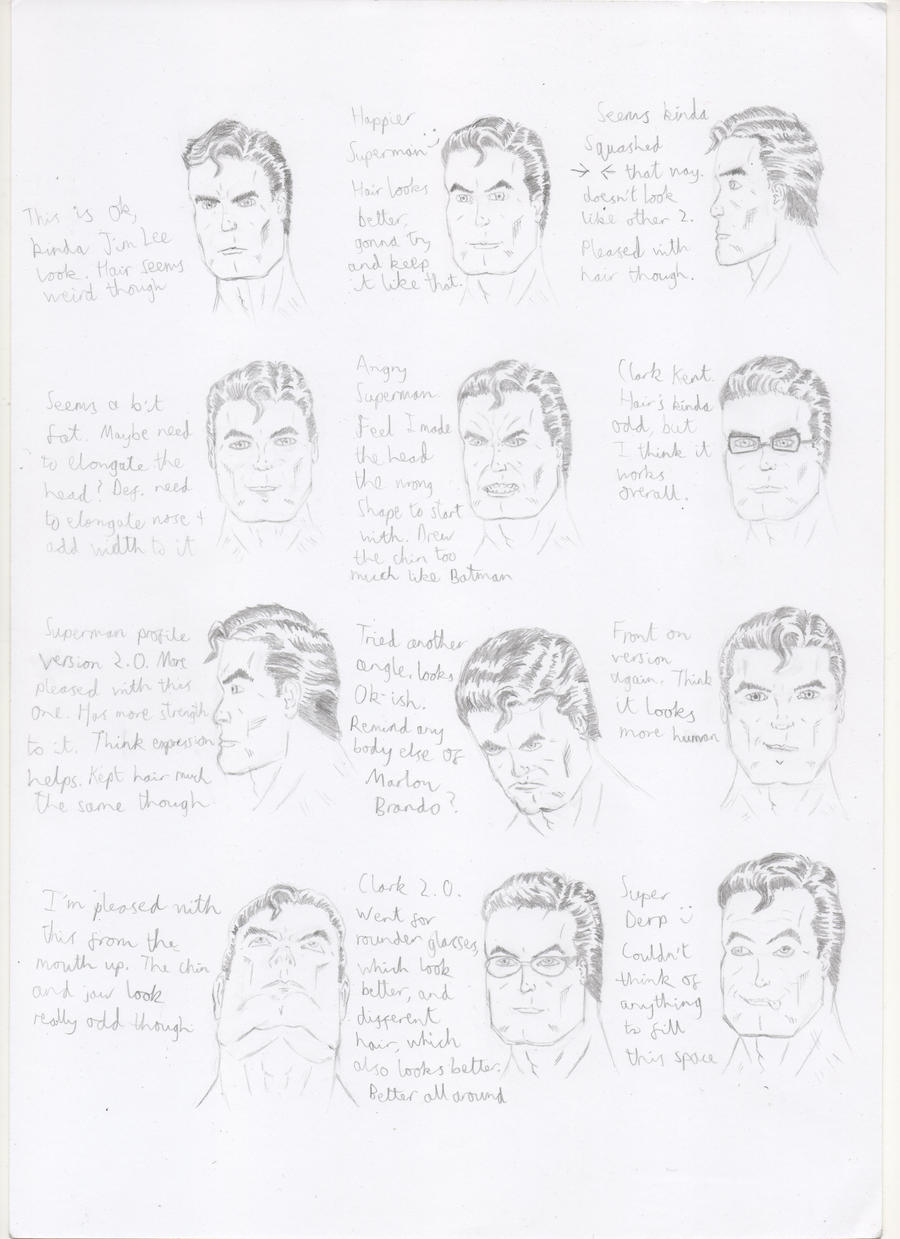 This is Ok,
kinda Jim Lee
look. Hair seems
weird though
Happier
Superman :)
Hair looks
better,
gonna try
and keep
it like that.
Seems kinda
Squashed
→ ← that way.
doesn't look
like other 2.
Pleased with
hair though.
Seems a bit
fat. Maybe need
to elongate the
head? Def. need
to elongate nose +
add width to it
Angry
Superman.
Feel I made
the head
the wrong
shape to start
with. Drew
the chin too
much like Batman
Clark Kent.
Hair's kinda
odd, but
I think it
works
overall.
Superman profile
version 2.0. More
pleased with this
one. Has more strength
to it. Think expression
helps. Kept hair much
the same though
Tried another
angle, looks
Ok-ish.
Remind any
body else of
Marlon
Brando?
Front on
version
again. Think
it looks
more human
I'm pleased with
this from the
mouth up. The chin
and jaw look
really odd though
Clark 2.0.
Went for
rounder glasses,
which look
better, and
different
hair, which
also looks better.
Better all around
Super
Derp :)
Couldn't
think of
anything
to fill
this space